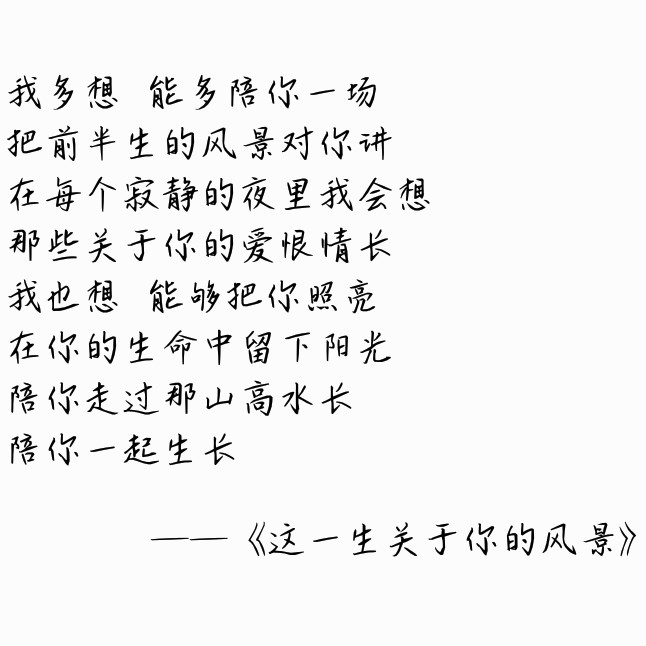 我多想  能多陪你一场
把前半生的风景对你讲
在每个寂静的夜里我会想
那些关于你的爱恨情长
我也想  能够把你照亮
在你的生命中留下阳光
陪你走过那山高水长
陪你一起生长
——《这一生关于你的风景》